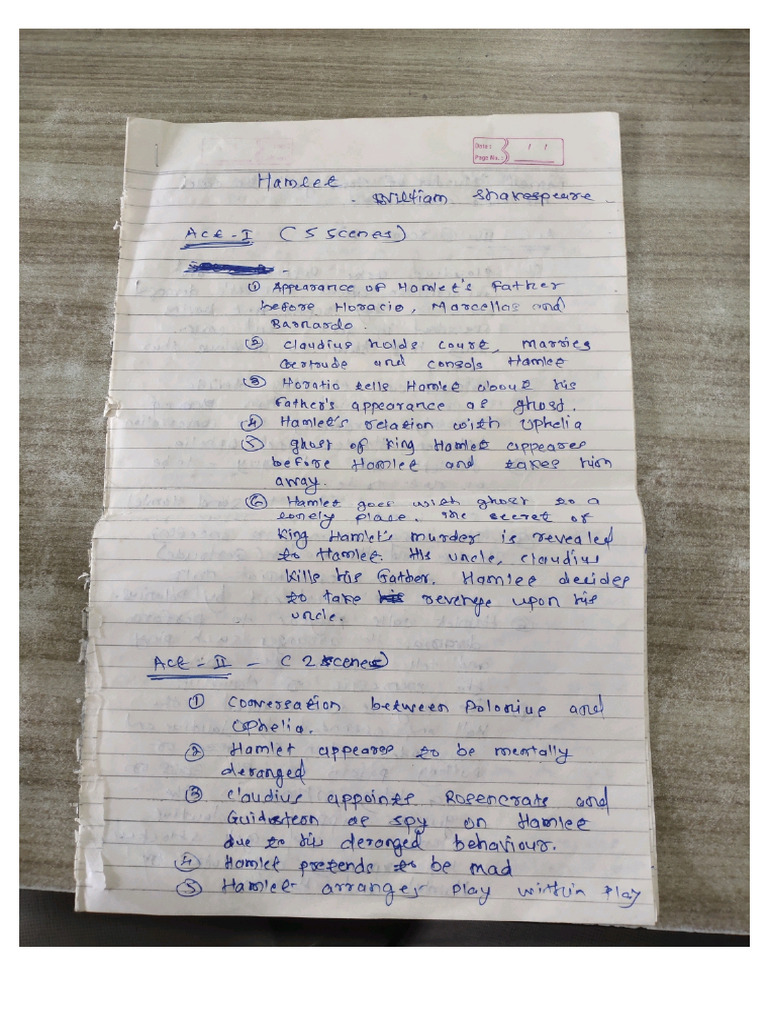 Date: / /
Page No.:
Hamlet
- William Shakespeare
Act - I (5 Scenes)
① Appearance of Hamlet's Father
before Horacio, Marcellas and
Barnardo.
② Claudius holds court, marries
Gertrude and consols Hamlet
③ Horatio tells Hamlet about his
Father's appearance as ghost.
④ Hamlet's relation with Ophelia
⑤ Ghost of King Hamlet appeares
before Hamlet and takes him
away.
⑥ Hamlet goes with ghost to a
lonely place. The secret of
King Hamlet's murder is revealed
to Hamlet. His uncle, Claudius
kills his Father. Hamlet decides
to take revenge upon his
uncle.
Act - II - (2 Scenes)
① Conversation between Polonius and
Ophelia.
② Hamlet appeares to be mentally
deranged
③ Claudius appoints Rosencrats and
as spy on Hamlet
due to his deranged behaviour.
④ Hamlet pretends to be mad
⑤ Hamlet arranges play within play